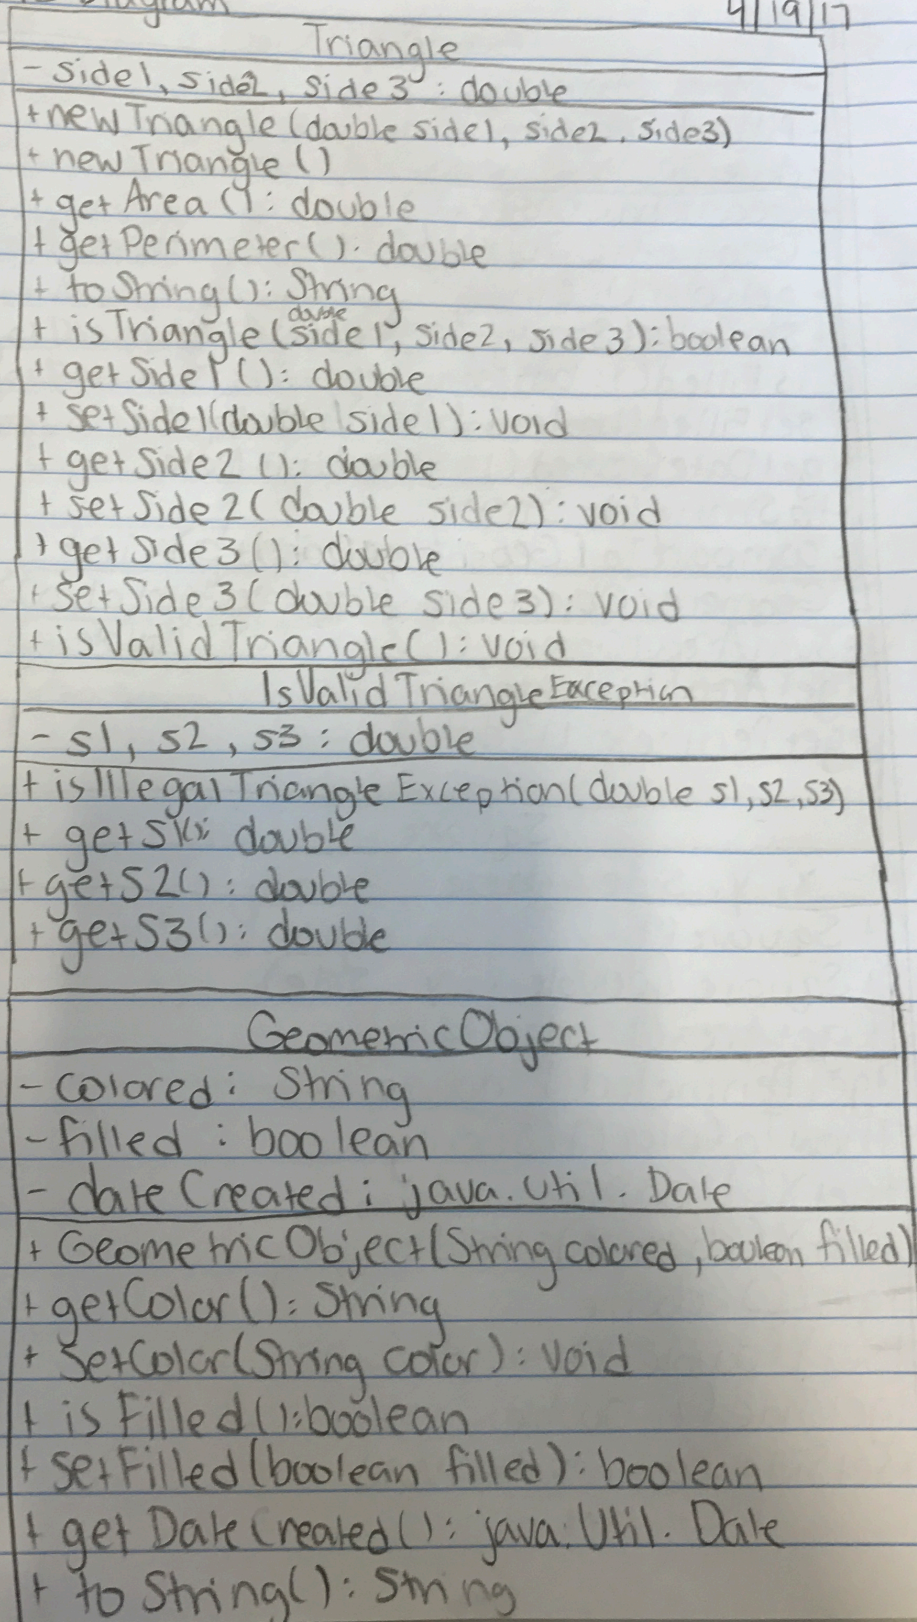 Diagram
4/19/17
Triangle
- side1, side2, side3 : double
+ newTriangle(double side1, side2, side3)
+ newTriangle()
+ getArea(): double
+ getPerimeter(): double
+ toString(): String
+ isTriangle(double side1, side2, side3): boolean
+ getSide1(): double
+ setSide1(double side1): void
+ getSide2(): double
+ setSide2(double side2): void
+ getSide3(): double
+ setSide3(double side3): void
+ isValidTriangle(): void
IsValidTriangleException
- s1, s2, s3 : double
+ isIllegalTriangleException(double s1, s2, s3)
+ getS1(): double
+ getS2(): double
+ getS3(): double
GeometricObject
- colored: String
- filled : boolean
- dateCreated: java.util.Date
+ GeometricObject(String colored, boolean filled)
+ getColor(): String
+ setColor(String color): void
+ isFilled(): boolean
+ setFilled(boolean filled): boolean
+ getDateCreated(): java.util.Date
+ toString(): String